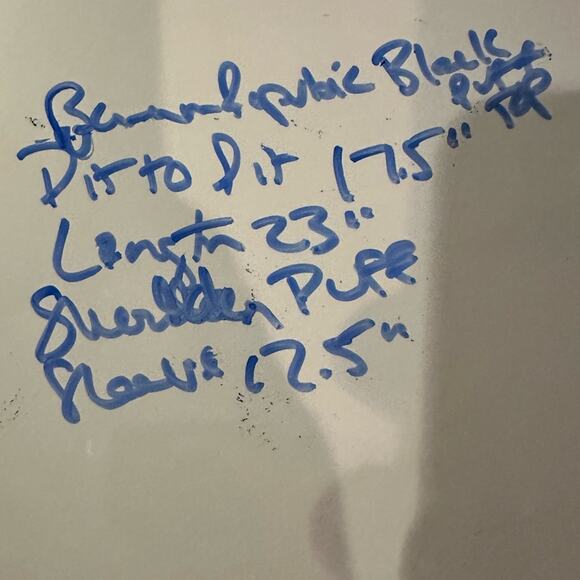 Banana Republic Black
Puff
Top
Pit to Pit 17.5"
Length 23"
Shoulder Puff
Sleeve 12.5"